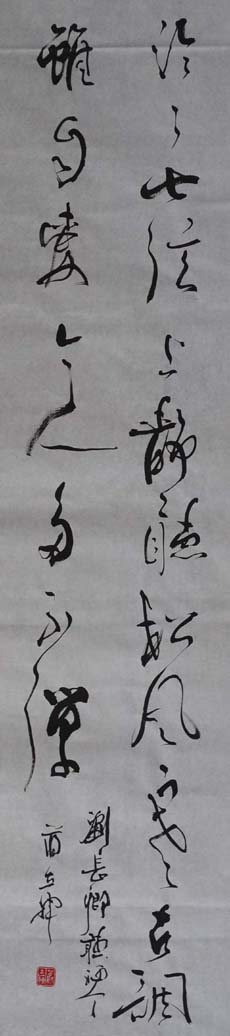 泠々七弦上靜聽松風寒古調
雖自愛今人多不彈
劉長卿聽